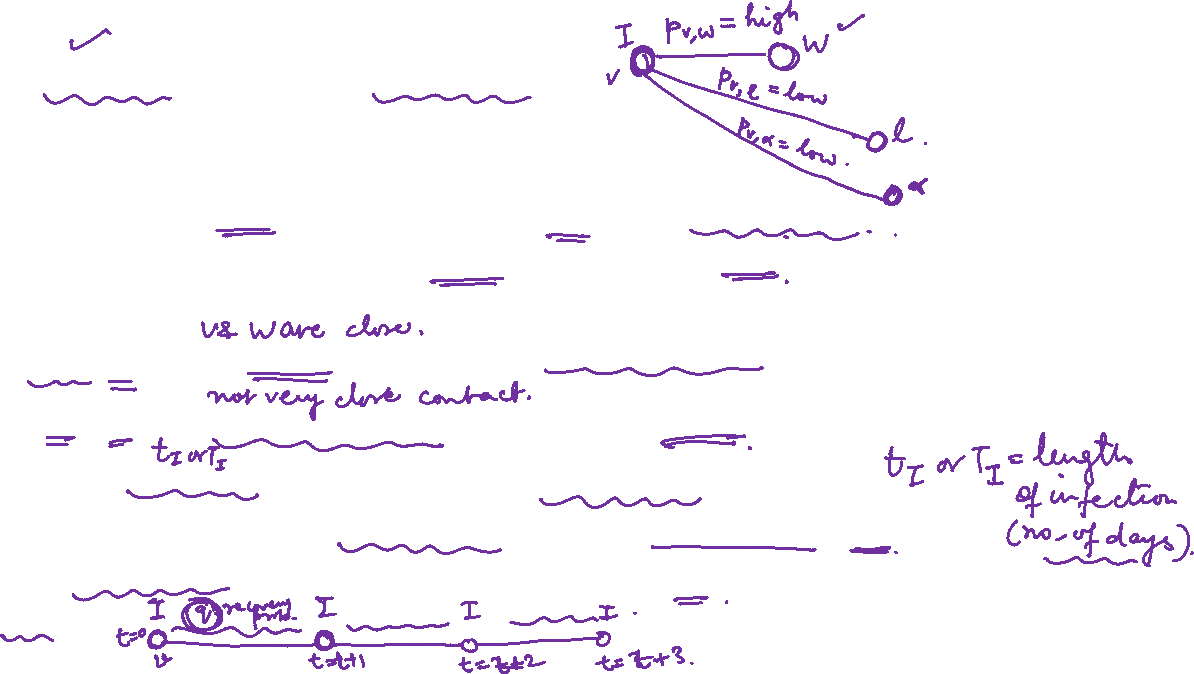 I P_{v,w} = high
v W
P_{v,l} = low
l.
P_{v,α} = low.
α
v & w are close.
not very close contact.
t_I or T_I
t_I or T_I = length
of infection
(no. of days).
I q recovery prob. I I I.
t=0 t=t+1 t=t+2 t=t+3.
v